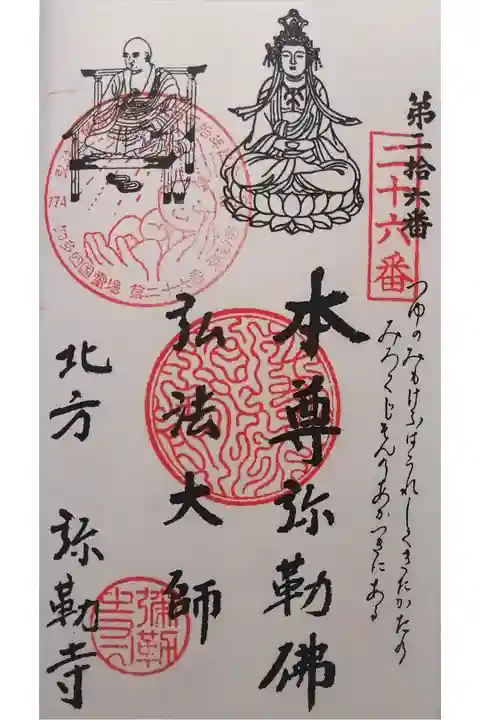 第二拾六番
二十六番
つゆのみもけふはうれしくきたかたの
みろくじそんのあかつきにある
本尊弥勒佛
弘法大師
北方 弥勒寺
知多四国霊場 第二十六番 弥勒寺
彌勒寺